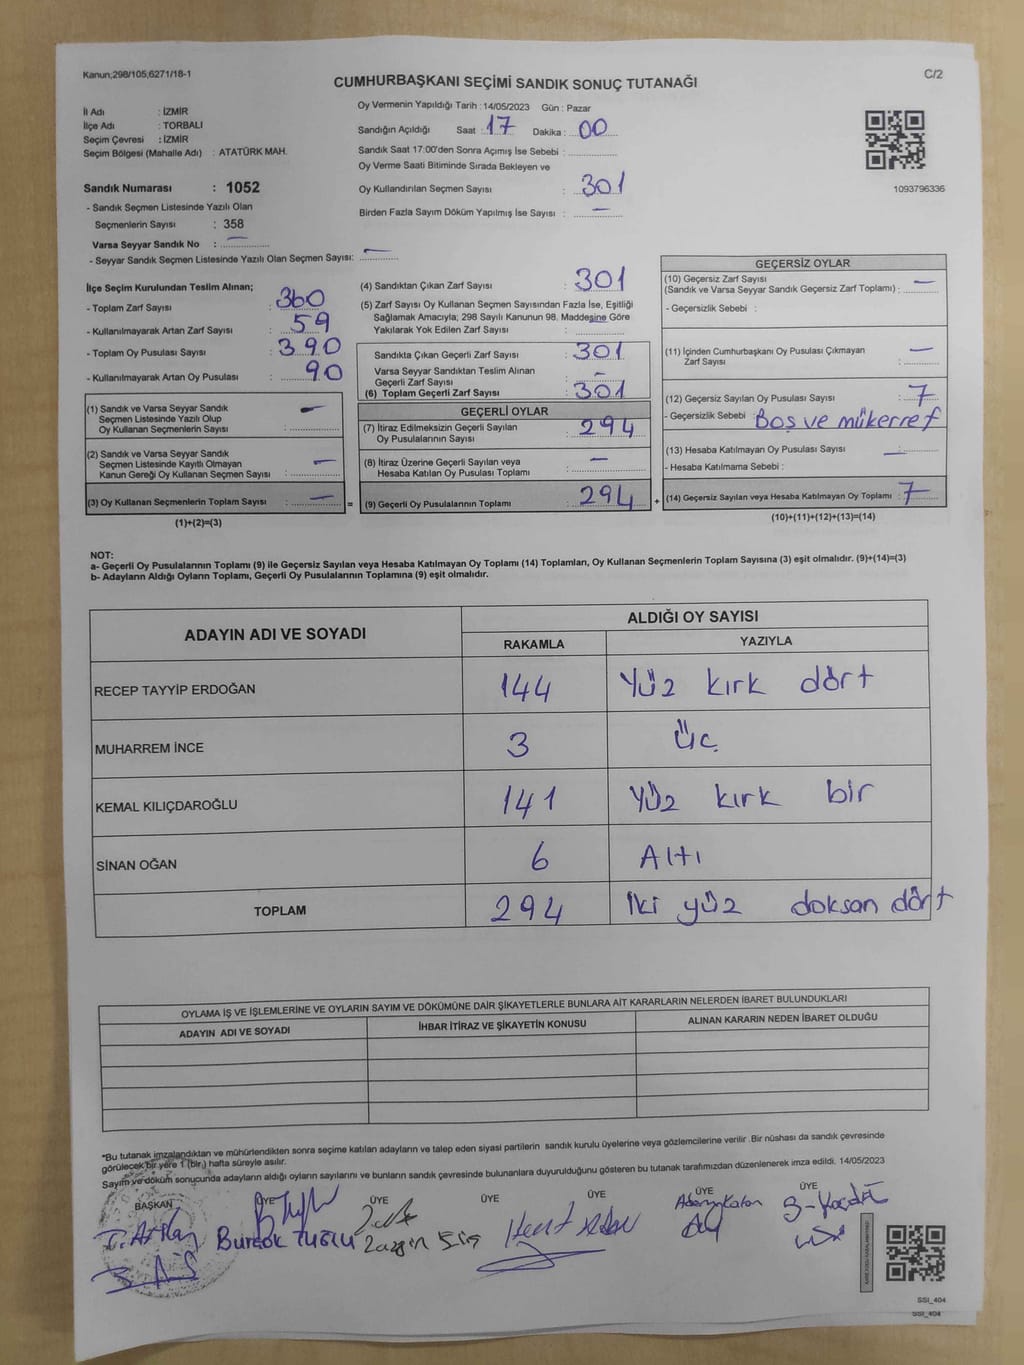 Kanun;298/105;6271/18-1
C/2
CUMHURBAŞKANI SEÇİMİ SANDIK SONUÇ TUTANAĞI
İl Adı : İZMİR
İlçe Adı : TORBALI
Seçim Çevresi : İZMİR
Seçim Bölgesi (Mahalle Adı) : ATATÜRK MAH.
Sandık Numarası : 1052
- Sandık Seçmen Listesinde Yazılı Olan
Seçmenlerin Sayısı : 358
Varsa Seyyar Sandık No : —
- Seyyar Sandık Seçmen Listesinde Yazılı Olan Seçmen Sayısı: —
Oy Vermenin Yapıldığı Tarih : 14/05/2023 Gün : Pazar
Sandığın Açıldığı Saat : 17 Dakika : 00
Sandık Saat 17:00'den Sonra Açımış İse Sebebi :
Oy Verme Saati Bitiminde Sırada Bekleyen ve
Oy Kullandırılan Seçmen Sayısı : 301
Birden Fazla Sayım Döküm Yapılmış İse Sayısı : —
1093796336
İlçe Seçim Kurulundan Teslim Alınan;
- Toplam Zarf Sayısı : 360
- Kullanılmayarak Artan Zarf Sayısı : 59
- Toplam Oy Pusulası Sayısı : 390
- Kullanılmayarak Artan Oy Pusulası : 90
(1) Sandık ve Varsa Seyyar Sandık
Seçmen Listesinde Yazılı Olup
Oy Kullanan Seçmenlerin Sayısı : —
(2) Sandık ve Varsa Seyyar Sandık
Seçmen Listesinde Kayıtlı Olmayan
Kanun Gereği Oy Kullanan Seçmen Sayısı : —
(3) Oy Kullanan Seçmenlerin Toplam Sayısı : — =
(1)+(2)=(3)
(4) Sandıktan Çıkan Zarf Sayısı : 301
(5) Zarf Sayısı Oy Kullanan Seçmen Sayısından Fazla İse, Eşitliği
Sağlamak Amacıyla; 298 Sayılı Kanunun 98. Maddesine Göre
Yakılarak Yok Edilen Zarf Sayısı : —
Sandıkta Çıkan Geçerli Zarf Sayısı : 301
Varsa Seyyar Sandıktan Teslim Alınan
Geçerli Zarf Sayısı : —
(6) Toplam Geçerli Zarf Sayısı : 301
GEÇERLİ OYLAR
(7) İtiraz Edilmeksizin Geçerli Sayılan
Oy Pusulalarının Sayısı : 294
(8) İtiraz Üzerine Geçerli Sayılan veya
Hesaba Katılan Oy Pusulası Toplamı : —
(9) Geçerli Oy Pusulalarının Toplamı : 294 +
GEÇERSİZ OYLAR
(10) Geçersiz Zarf Sayısı
(Sandık ve Varsa Seyyar Sandık Geçersiz Zarf Toplamı) : —
- Geçersizlik Sebebi :
(11) İçinden Cumhurbaşkanı Oy Pusulası Çıkmayan
Zarf Sayısı : —
(12) Geçersiz Sayılan Oy Pusulası Sayısı : 7
- Geçersizlik Sebebi : Boş ve mükerref
(13) Hesaba Katılmayan Oy Pusulası Sayısı : —
- Hesaba Katılmama Sebebi :
(14) Geçersiz Sayılan veya Hesaba Katılmayan Oy Toplamı : 7
(10)+(11)+(12)+(13)=(14)
NOT:
a- Geçerli Oy Pusulalarının Toplamı (9) ile Geçersiz Sayılan veya Hesaba Katılmayan Oy Toplamı (14) Toplamları, Oy Kullanan Seçmenlerin Toplam Sayısına (3) eşit olmalıdır. (9)+(14)=(3)
b- Adayların Aldığı Oyların Toplamı, Geçerli Oy Pusulalarının Toplamına (9) eşit olmalıdır.
ADAYIN ADI VE SOYADI ALDIĞI OY SAYISI
RAKAMLA YAZIYLA
RECEP TAYYİP ERDOĞAN 144 Yüz kırk dört
MUHARREM İNCE 3 Üç
KEMAL KILIÇDAROĞLU 141 Yüz kırk bir
SİNAN OĞAN 6 Altı
TOPLAM 294 İki yüz doksan dört
OYLAMA İŞ VE İŞLEMLERİNE VE OYLARIN SAYIM VE DÖKÜMÜNE DAİR ŞİKAYETLERLE BUNLARA AİT KARARLARIN NELERDEN İBARET BULUNDUKLARI
ADAYIN ADI VE SOYADI İHBAR İTİRAZ VE ŞİKAYETİN KONUSU ALINAN KARARIN NEDEN İBARET OLDUĞU
*Bu tutanak imzalandıktan ve mühürlendikten sonra seçime katılan adayların ve talep eden siyasi partilerin sandık kurulu üyelerine veya gözlemcilerine verilir. Bir nüshası da sandık çevresinde
görülecek bir yere 1 (bir) hafta süreyle asılır.
Sayım ve döküm sonucunda adayların aldığı oyların sayılarını ve bunların sandık çevresinde bulunanlara duyurulduğunu gösteren bu tutanak tarafımızdan düzenlenerek imza edildi. 14/05/2023
BAŞKAN ÜYE ÜYE ÜYE ÜYE ÜYE ÜYE
SSI_404
SSI_404